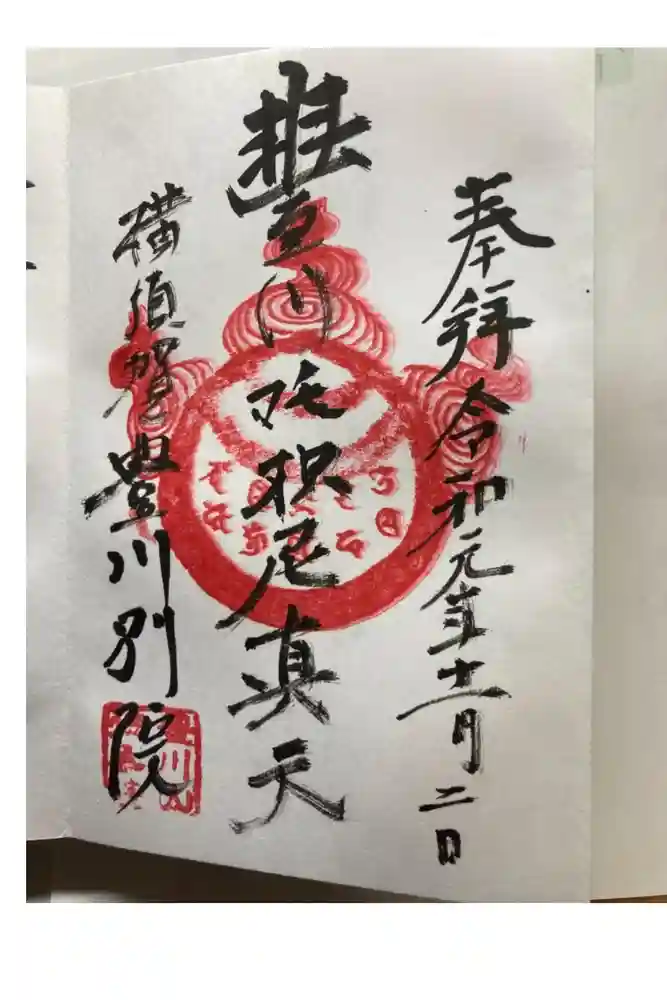 奉拝 令和元年十一月二日
豐川吒枳尼真天
横須賀豊川別院